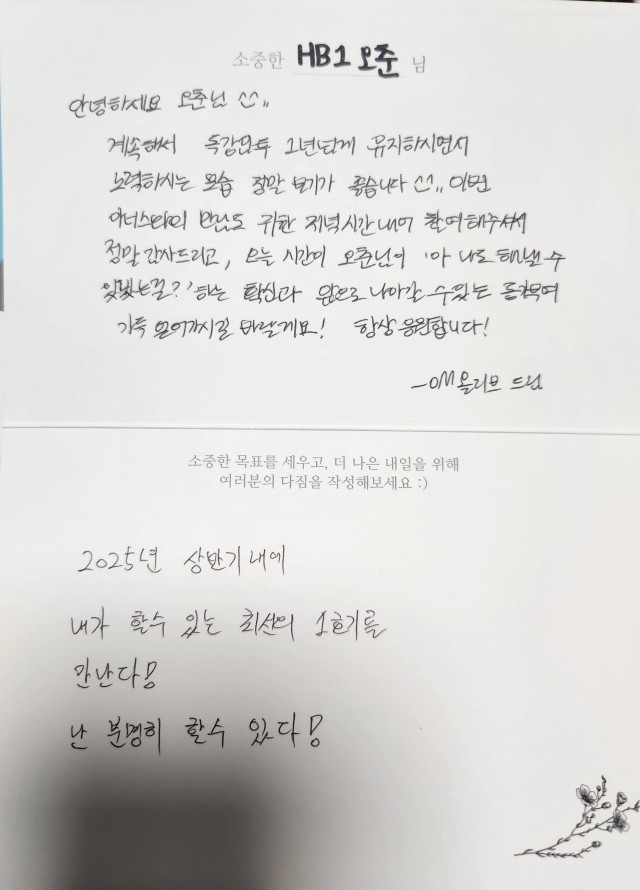 소중한 HB1 오준 님
안녕하세요 오준님 ^^,,
계속해서 독강모투 1년넘게 유지하시면서
노력하시는 모습 정말 보기가 좋습니다 ^^,, 이번
이너스와의 만남도 귀한 저녁시간내어 참여해주셔서
정말 감사드리고, 오늘 시간이 오준님이 '아 나도 해낼 수
있겠는걸?' 하는 확신과 앞으로 나아갈 수있는
가득 얻어가시길 바랄게요! 항상 응원합니다!
-OM올리브 드림
소중한 목표를 세우고, 더 나은 내일을 위해
여러분의 다짐을 작성해보세요 :)
2025년 상반기 내에
내가 할수 있는 최선의 1호기를
만난다!
난 분명히 할수 있다!